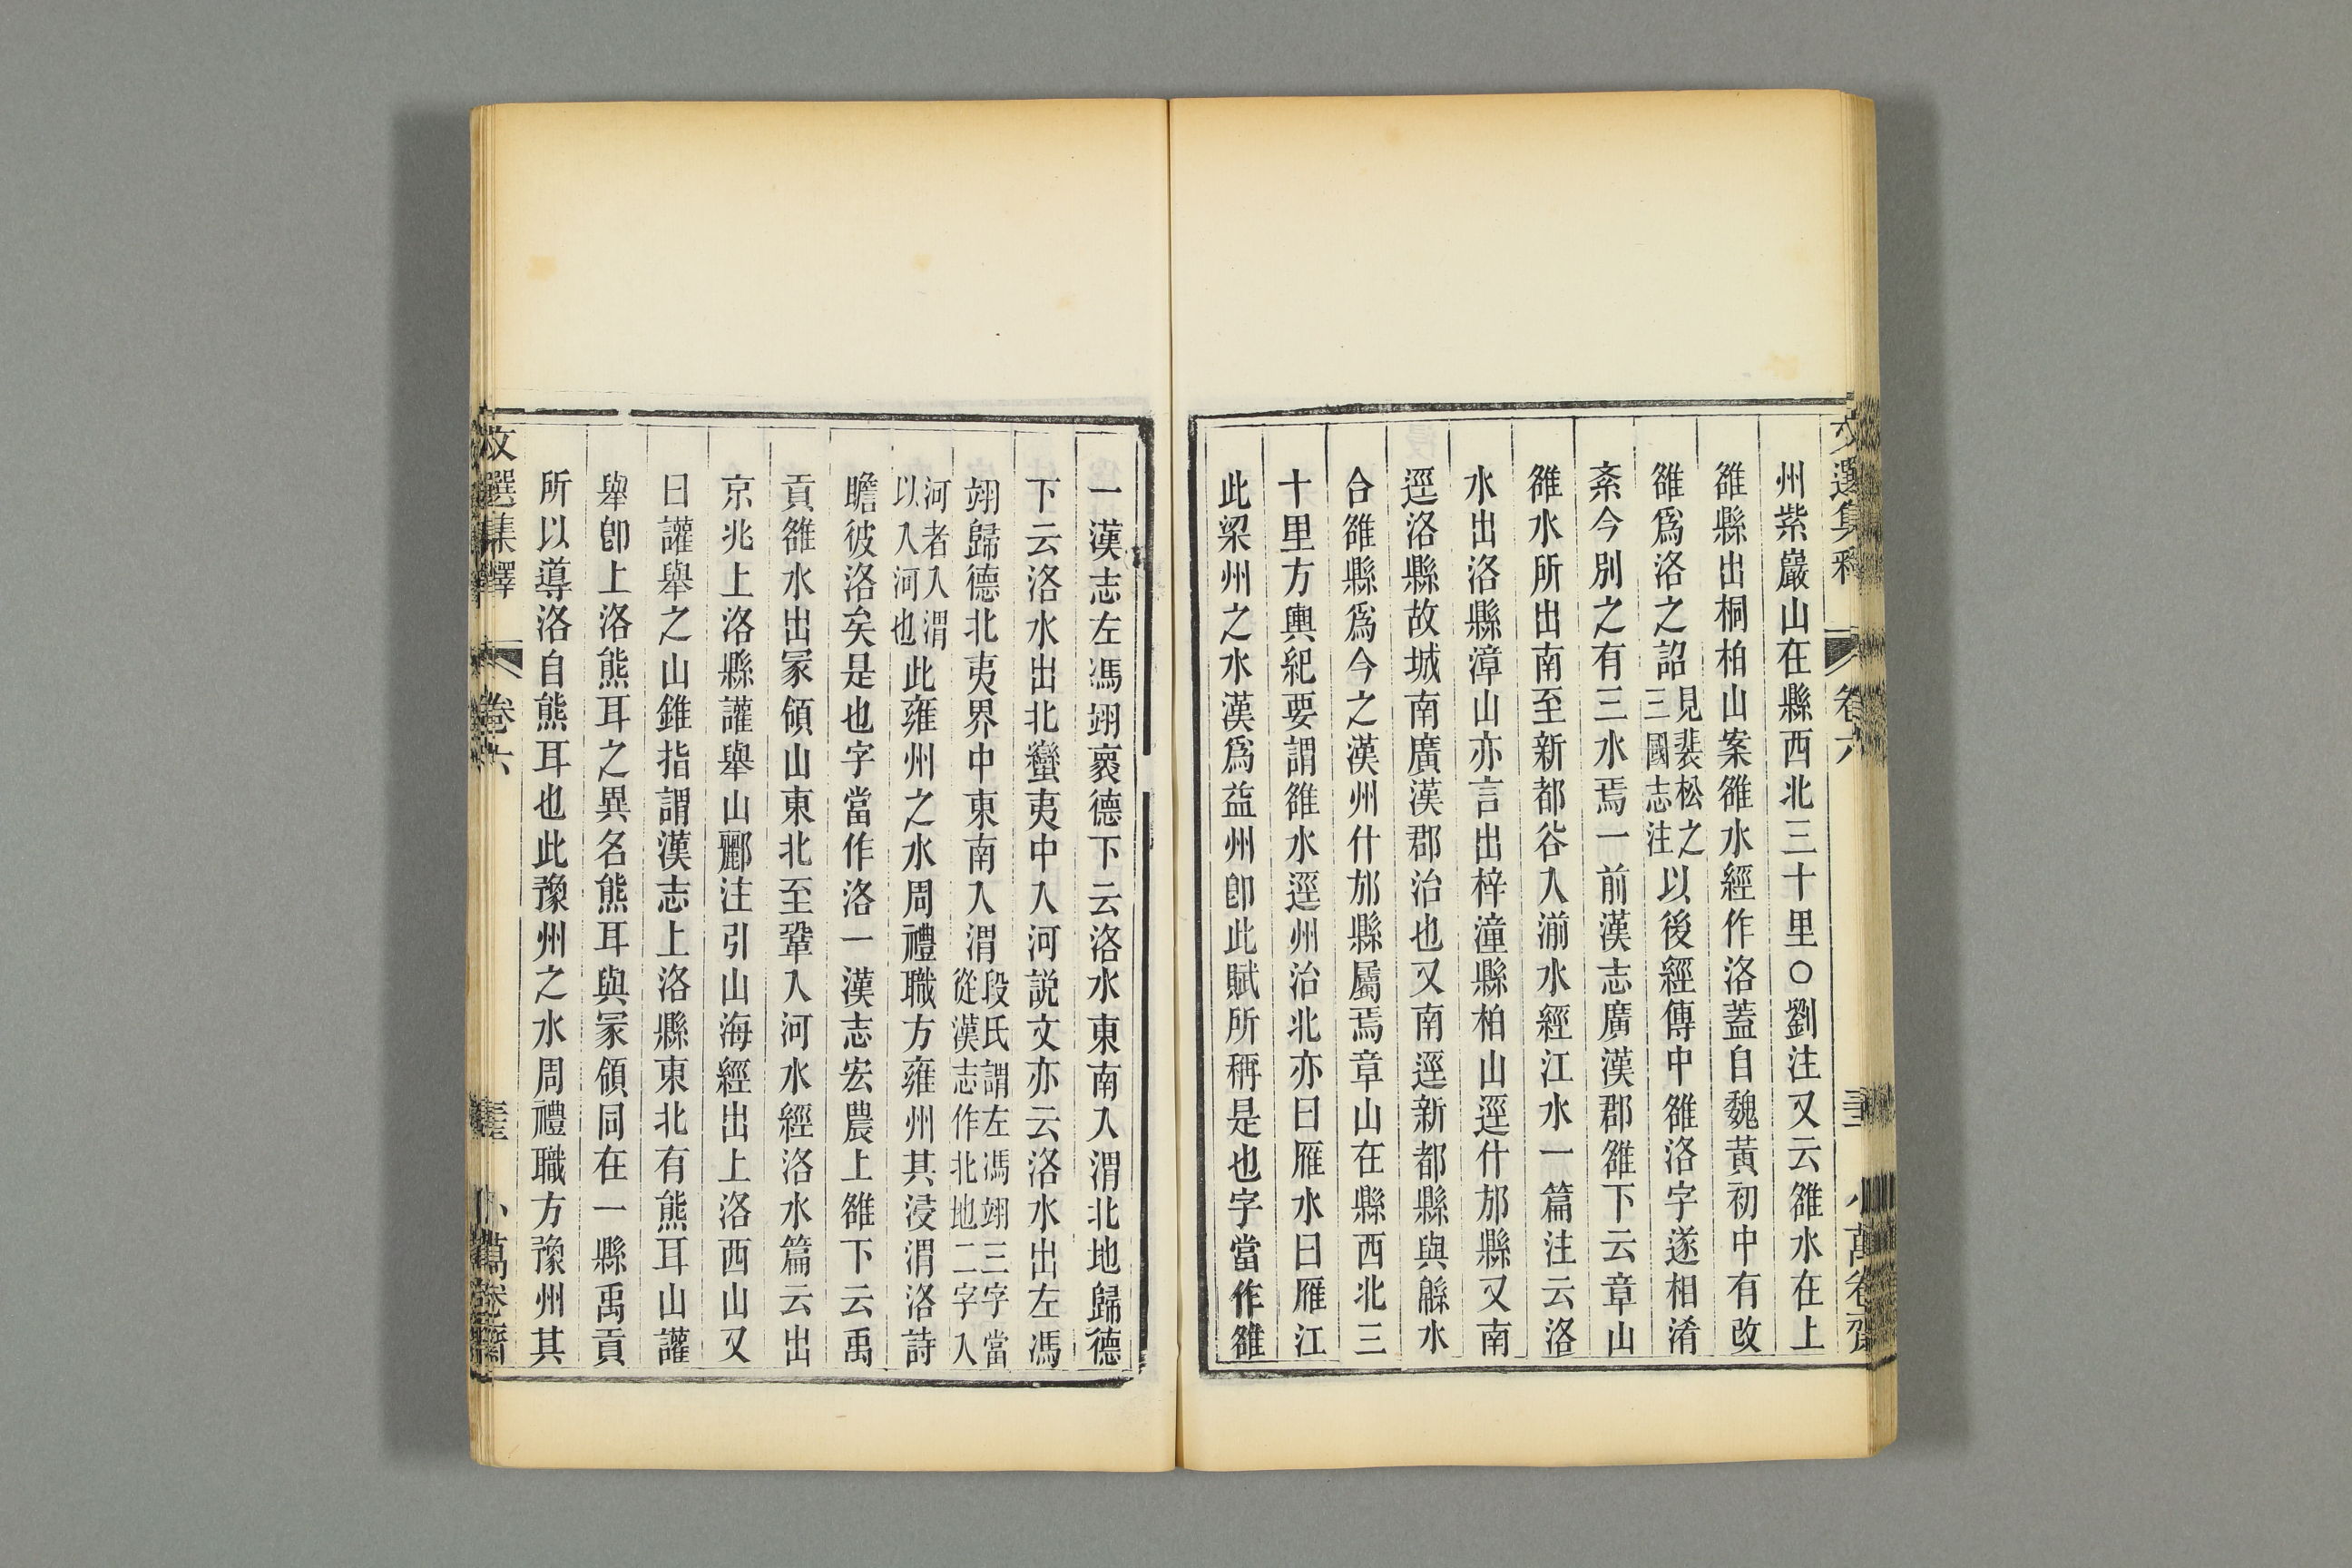 文選集釋 卷六 小萬卷齋
州紫巖山在縣西北三十里○劉注又云雒水在上
雒縣出桐柏山案雒水經作洛蓋自魏黃初中有改
雒爲洛之詔見裴松之三國志注以後經傳中雒洛字遂相淆
紊今別之有三水焉一前漢志廣漢郡雒下云章山
雒水所出南至新都谷入湔水經江水一篇注云洛
水出洛縣漳山亦言出梓潼縣柏山逕什邡縣又南
逕洛縣故城南廣漢郡治也又南逕新都縣與緜水
合雒縣爲今之漢州什邡縣屬焉章山在縣西北三
十里方輿紀要謂雒水逕州治北亦曰雁水曰雁江
此梁州之水漢爲益州卽此賦所稱是也字當作雒
一漢志左馮翊褱德下云洛水東南入渭北地歸德
下云洛水出北蠻夷中入河説文亦云洛水出左馮
翊歸德北夷界中東南入渭段氏謂左馮翊三字當從漢志作北地二字入
河者入渭以入河也此雍州之水周禮職方雍州其浸渭洛詩
瞻彼洛矣是也字當作洛一漢志宏農上雒下云禹
貢雒水出冢領山東北至鞏入河水經洛水篇云出
京兆上洛縣讙舉山酈注引山海經出上洛西山又
曰讙舉之山錐指謂漢志上洛縣東北有熊耳山讙
舉卽上洛熊耳之異名熊耳與冢領同在一縣禹貢
所以導洛自熊耳也此豫州之水周禮職方豫州其
文選集釋 卷六 小萬卷齋